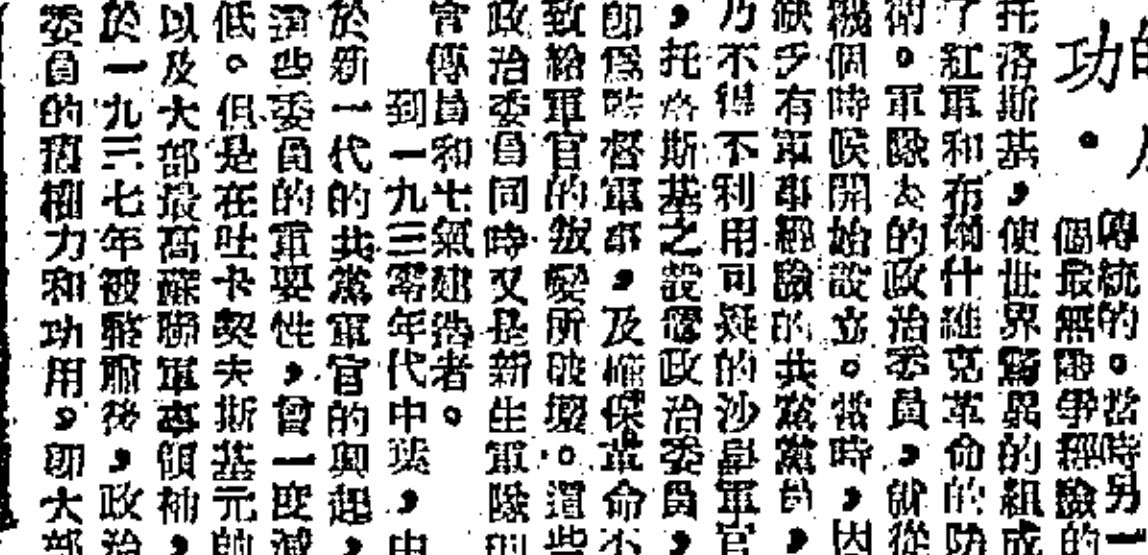 功·
傳統的。當時另一
個最無戰爭經驗的
托洛斯基，使世界驚異的組成
了紅軍和布爾什維克革命的防
衛。軍隊裏的政治委員，就從
機個時候開始設立。當時，因
缺乏有軍事經驗的共黨黨員，
乃不得不利用可疑的沙皇軍官
，托洛斯基之設置政治委員，
即爲監督軍事，及確保革命不
致給軍官的叛變所破壞。這些
政治委員同時又是新生軍隊
官傳員和士氣建造者。
到一九三零年代中葉，由
於新一代的共黨軍官的興起，
這些委員的重要性，曾一度減
低。但是在吐卡契夫斯基元帥
以及大部最高蘇聯軍事領袖，
於一九三七年被整肅後，政治
委員的權力和功用，卽大部